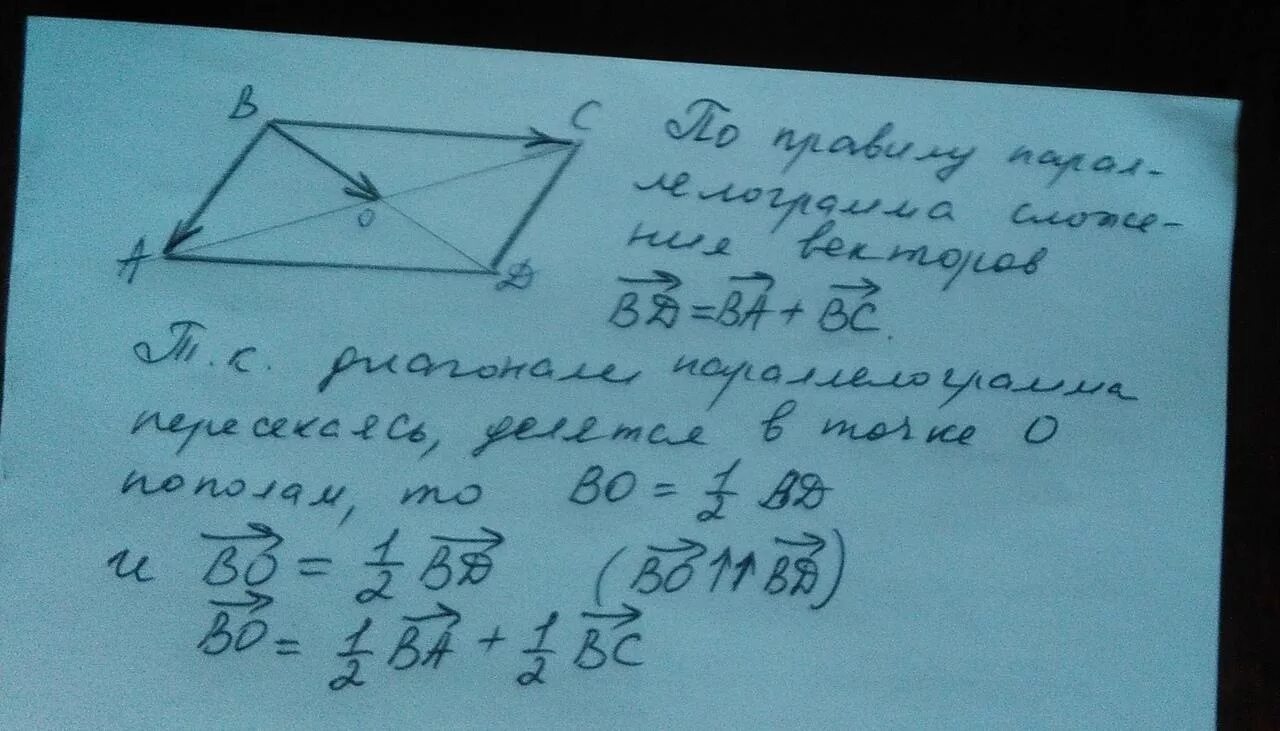 B
C
O
A
D
По правилу парал-
лелограмма сложе-
ния векторов
$\overrightarrow{BD} = \overrightarrow{BA} + \overrightarrow{BC}$.
Т.к. диагонали параллелограмма
пересекаясь, делятся в точке O
пополам, то $BO = \frac{1}{2} BD$
и $\overrightarrow{BO} = \frac{1}{2} \overrightarrow{BD}$ ($\overrightarrow{BO} ↑↑ \overrightarrow{BD}$)
$\overrightarrow{BO} = \frac{1}{2} \overrightarrow{BA} + \frac{1}{2} \overrightarrow{BC}$